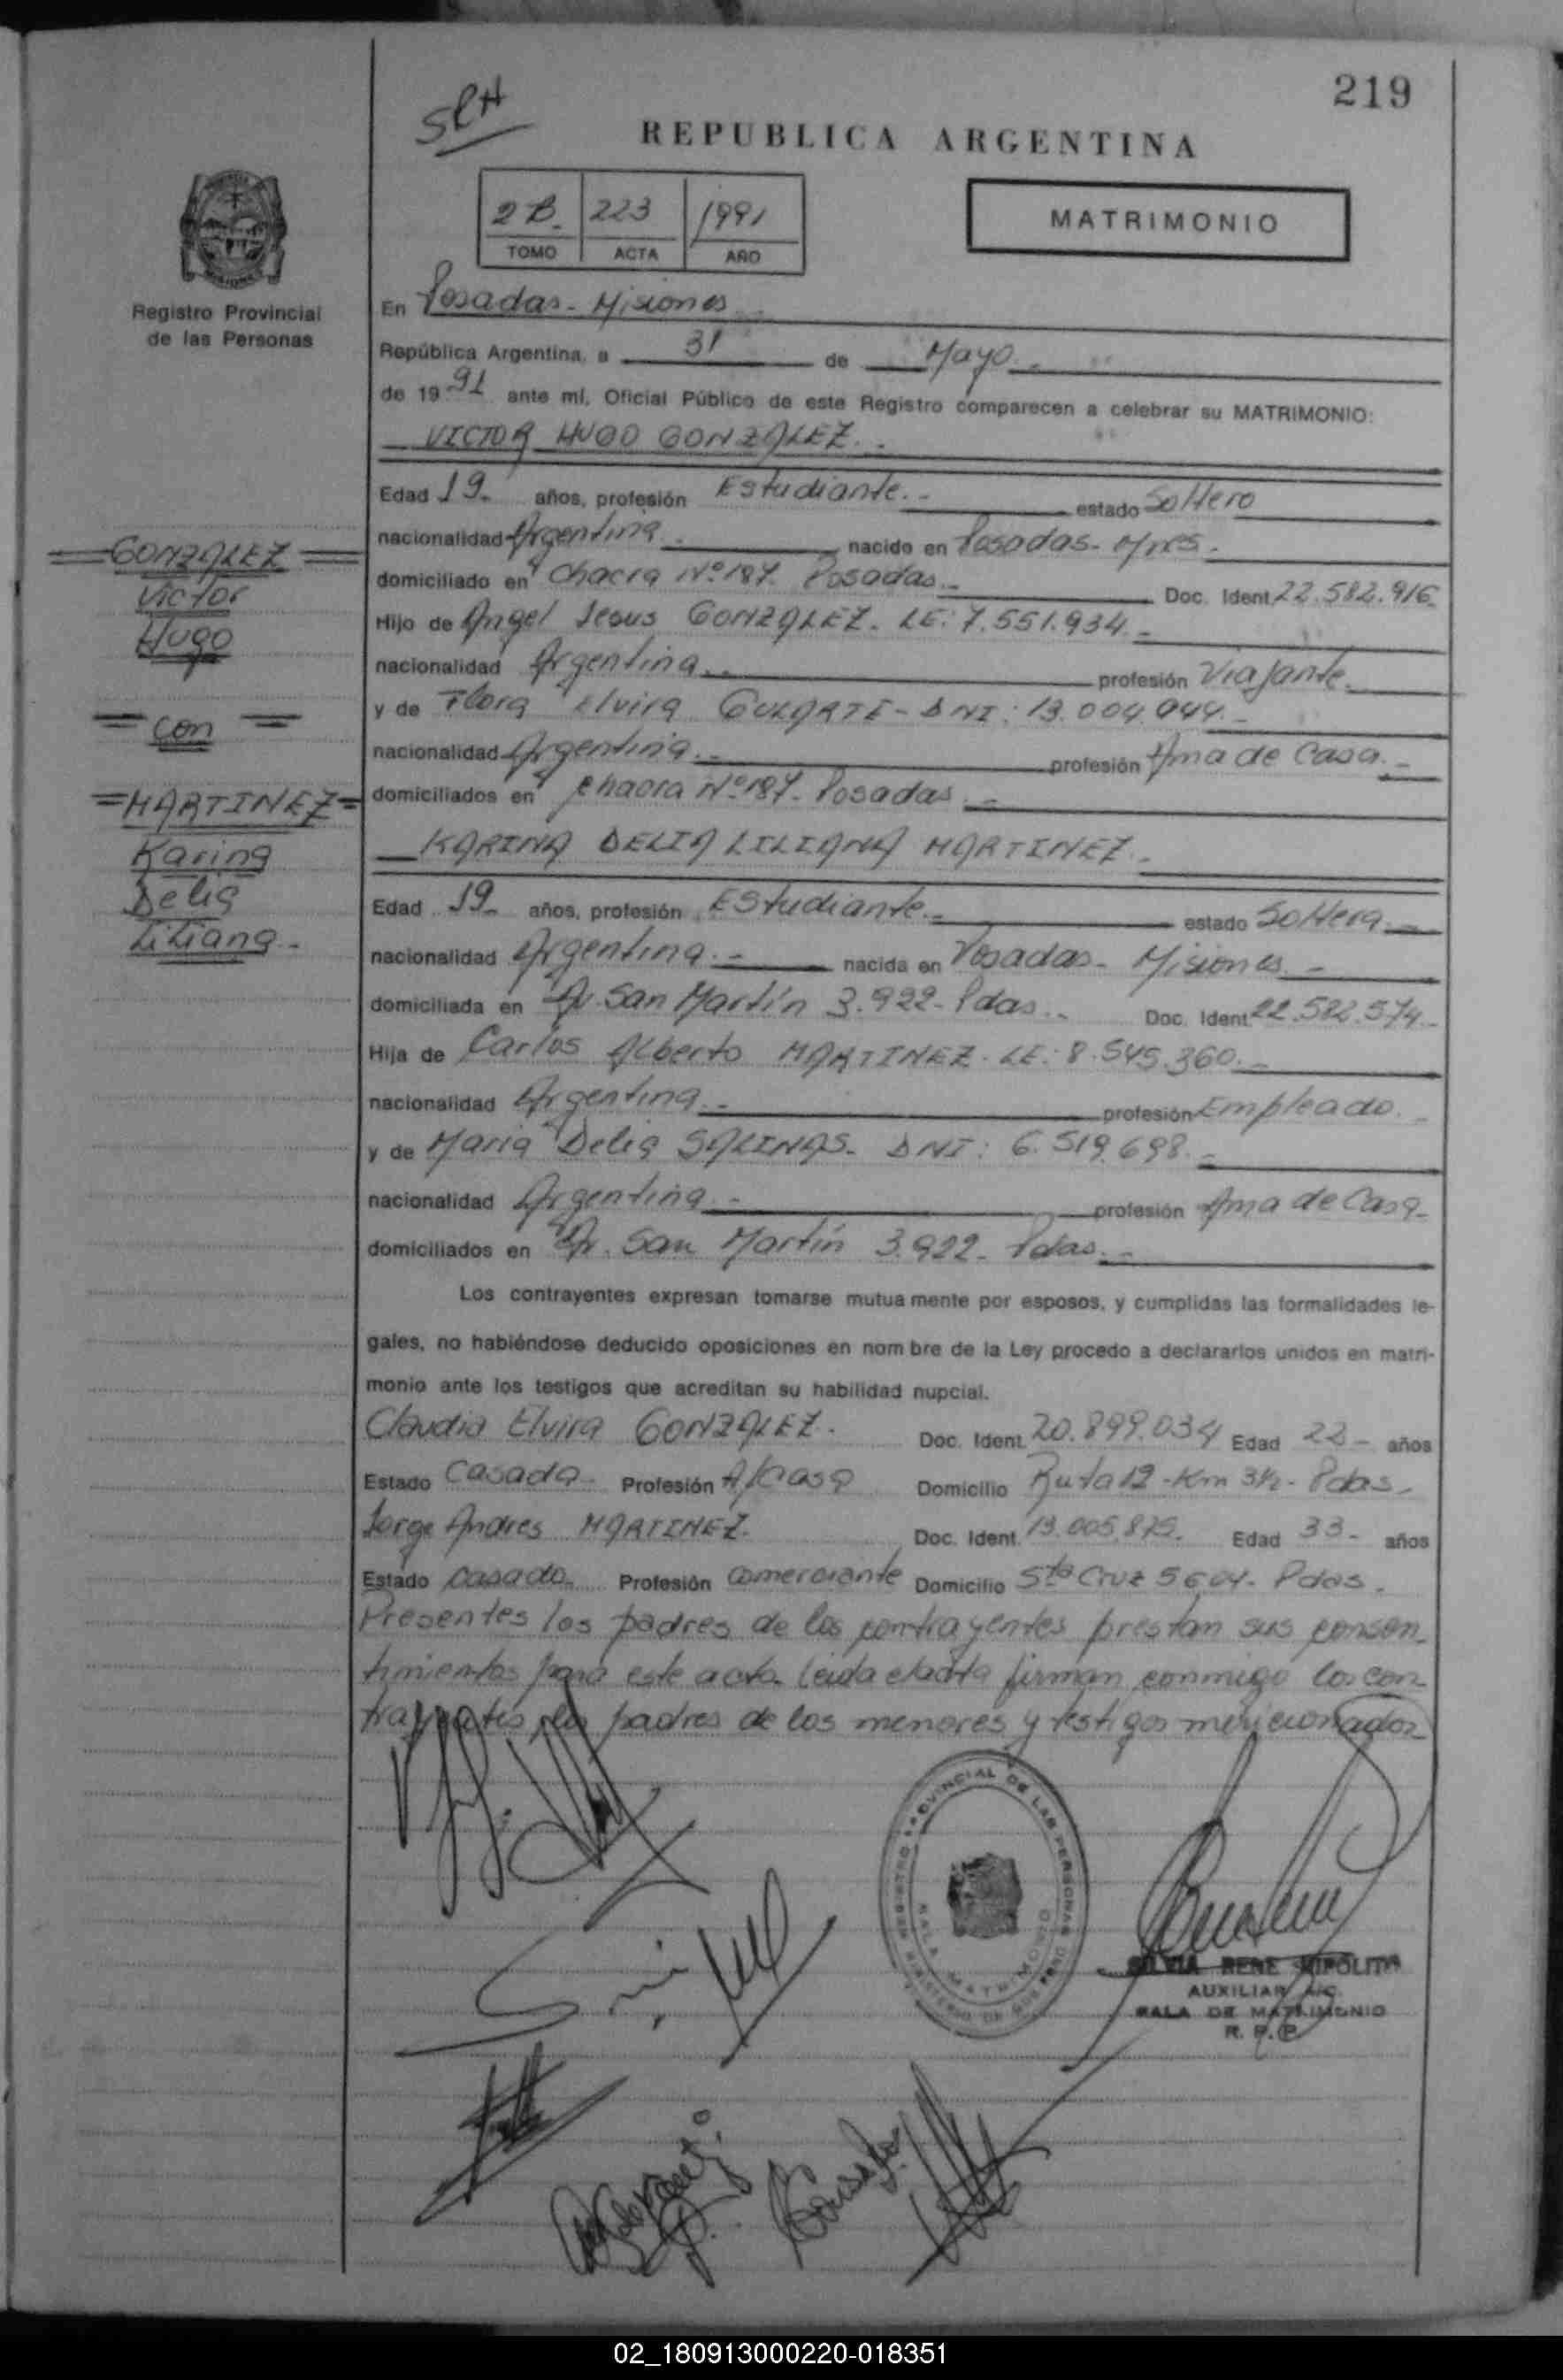 219
SRH
REPUBLICA ARGENTINA
2B 223 1991
TOMO ACTA AÑO
MATRIMONIO
Registro Provincial
de las Personas
En Posadas - Misiones
República Argentina, a 31 de Mayo.-
de 1991 ante mí, Oficial Público de este Registro comparecen a celebrar su MATRIMONIO:
VICTOR HUGO GONZALEZ.-
Edad 19- años, profesión Estudiante.- estado Soltero
nacionalidad Argentina.- nacido en Posadas- Mnes.
domiciliado en Chacra Nº 187. Posadas.- Doc. Ident. 22.582.916
Hijo de Angel Jesus GONZALEZ. LE: 7.551.934.-
nacionalidad Argentina.- profesión Viajante.
y de Flora Elvira DNI: 13.004.044.-
nacionalidad Argentina.- profesión Ama de Casa.-
domiciliados en Chacra Nº 187- Posadas.-
KARINA DELIA LILIANA MARTINEZ.-
Edad 19- años, profesión Estudiante.- estado Soltera.-
nacionalidad Argentina.- nacida en Posadas- Misiones.-
domiciliada en Av. San Martín 3.922- Pdas.- Doc. Ident. 22.582.574.-
Hija de Carlos Alberto MARTINEZ. LE: 8.545.360.-
nacionalidad Argentina.- profesión Empleado.-
y de Maria Delia SALINAS- DNI: 6.519.698.-
nacionalidad Argentina.- profesión Ama de Casa-
domiciliados en Av. San Martín 3.922- Pdas.-
Los contrayentes expresan tomarse mutua mente por esposos, y cumplidas las formalidades le-
gales, no habiéndose deducido oposiciones en nom bre de la Ley procedo a declararlos unidos en matri-
monio ante los testigos que acreditan su habilidad nupcial.
Claudia Elvira GONZALEZ. Doc. Ident. 20.899.034 Edad 22- años
Estado Casada- Profesión A/Casa Domicilio Ruta 12 -Km 3½- Pdas.
Jorge Andres MARTINEZ. Doc. Ident. 13.005.875. Edad 33- años
Estado Casado. Profesión Comerciante Domicilio Sta Cruz 5604- Pdas.
Presentes los padres de los contrayentes prestan sus consen-
timientos para este acto. Leida el acta firman conmigo los con-
trayentes, los padres de los menores y testigos mencionados
GONZALEZ
Victor
Hugo
= con =
= MARTINEZ =
Karina
Delia
Liliana.-
REGISTRO PROVINCIAL DE LAS PERSONAS
MINISTERIO DE GOBIERNO
SALA MATRIMONIO
SILVIA RENE HIPOLITO
AUXILIAR A/C.
SALA DE MATRIMONIO
R. P. P.
02_180913000220-018351